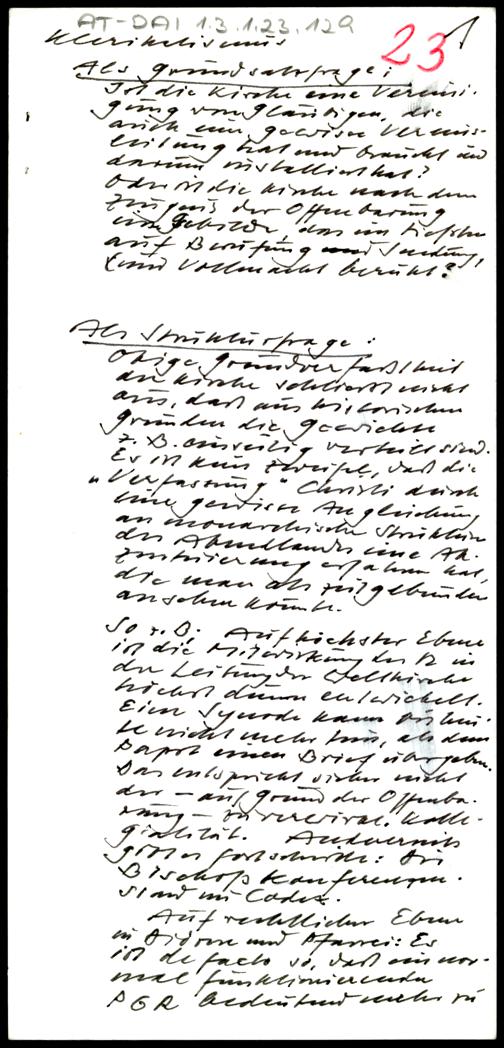 AT-DAI 1.3.1.23.129
23
Klerikalismus
Als Grundsatzfrage:
Ist die Kirche eine Vereini-
gung von Gläubigen, die
auch eine gewisse Vereins-
leitung hat und braucht und
darum installiert hat?
Oder ist die Kirche nach dem
Zeugnis der Offenbarung
ein Gebilde, das im tiefsten
auf Berufung und Sendung,
(und Vollmacht beruht?
Als Strukturfrage:
Obige Grundverfaßtheit
der Kirche schließt nicht
aus, daß aus historischen
Gründen die Gewichte
z. B. einseitig verteilt sind.
Es ist kein Zweifel, daß die
"Verfassung" Christi durch
eine gewisse Angleichung
an monarchische Strukturen
des Abendlandes eine Ak-
zentuierung erfahren hat,
die man als zeitgebunden
ansehen könnte.
So z. B.: Auf höchster Ebene
ist die Mitwirkung der B in
der Leitung der Weltkirche
höchst dünn entwickelt.
Eine Synode kann bis heu-
te nicht mehr tun, als dem
Papst einen Brief übergeben.
Das entspricht sicher nicht
der – auf Grund der Offenba-
rung – Kolle-
gialität. Andererseits
großer Fortschritt: Die
Bischofskonferenzen.
Stand im Codex.
Auf rechtlicher Ebene
in Diözese und Pfarrei: Es
ist de facto so, daß ein nor-
mal funktionierender
PGR bedeutend mehr zu